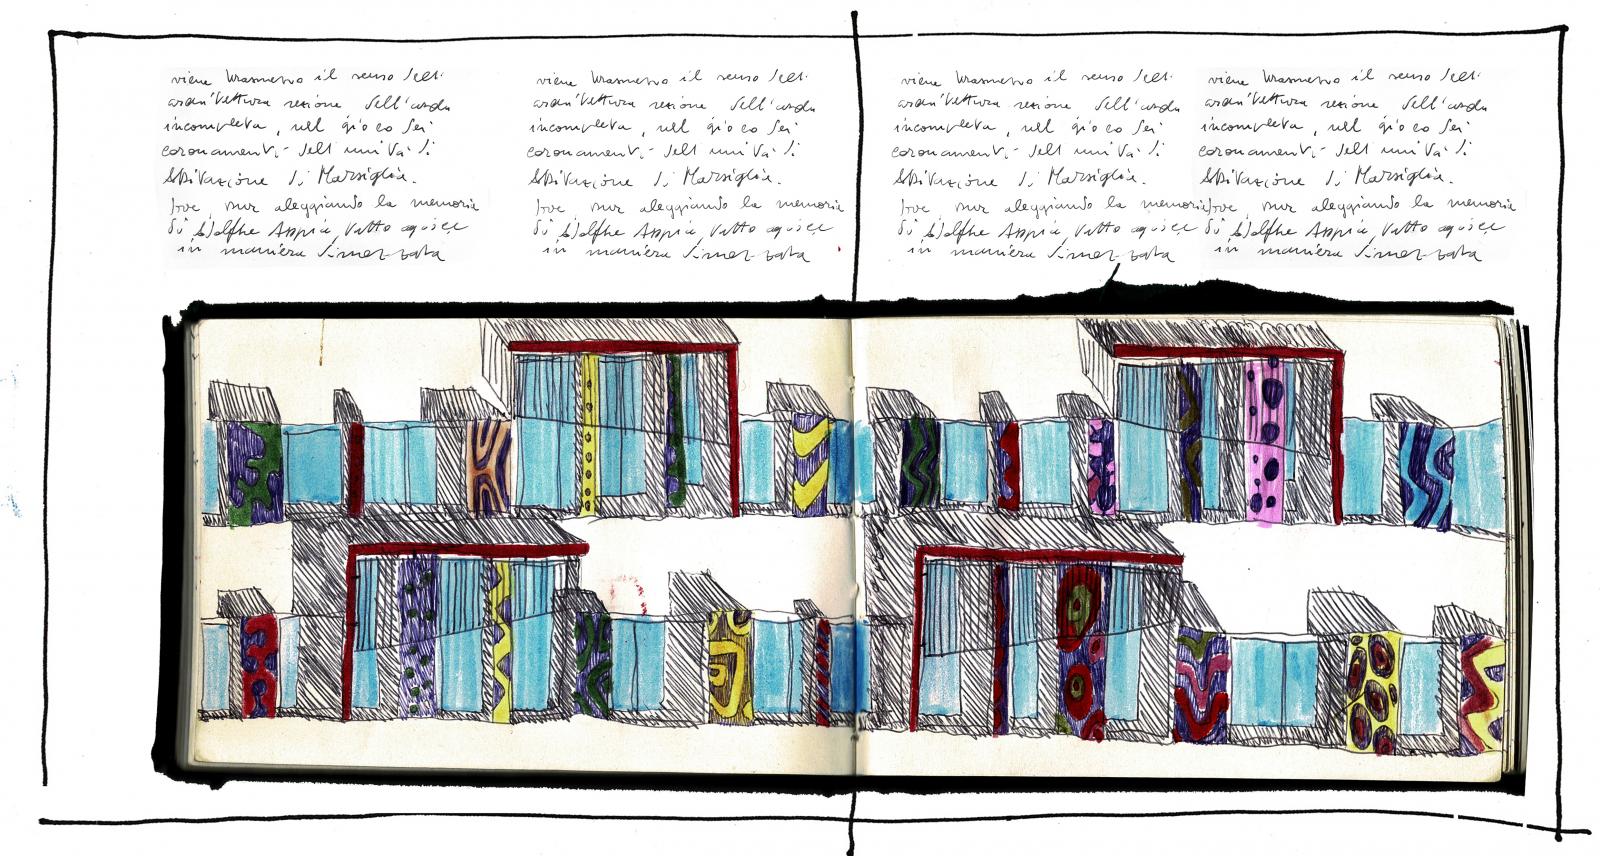 viene trasmesso il senso dell'
architettura sezione dell'onda
incompleta, nel gioco dei
coronamenti dell'unità di
Abitazione di Marsiglia.
Dove, pur aleggiando la memoria
di Adolphe Appia, tutto agisce
in maniera
viene trasmesso il senso dell'
architettura sezione dell'onda
incompleta, nel gioco dei
coronamenti dell'unità di
Abitazione di Marsiglia.
Dove, pur aleggiando la memoria
di Adolphe Appia, tutto agisce
in maniera
viene trasmesso il senso dell'
architettura sezione dell'onda
incompleta, nel gioco dei
coronamenti dell'unità di
Abitazione di Marsiglia.
Dove, pur aleggiando la memoria
di Adolphe Appia, tutto agisce
in maniera
viene trasmesso il senso dell'
architettura sezione dell'onda
incompleta, nel gioco dei
coronamenti dell'unità di
Abitazione di Marsiglia.
Dove, pur aleggiando la memoria
di Adolphe Appia, tutto agisce
in maniera